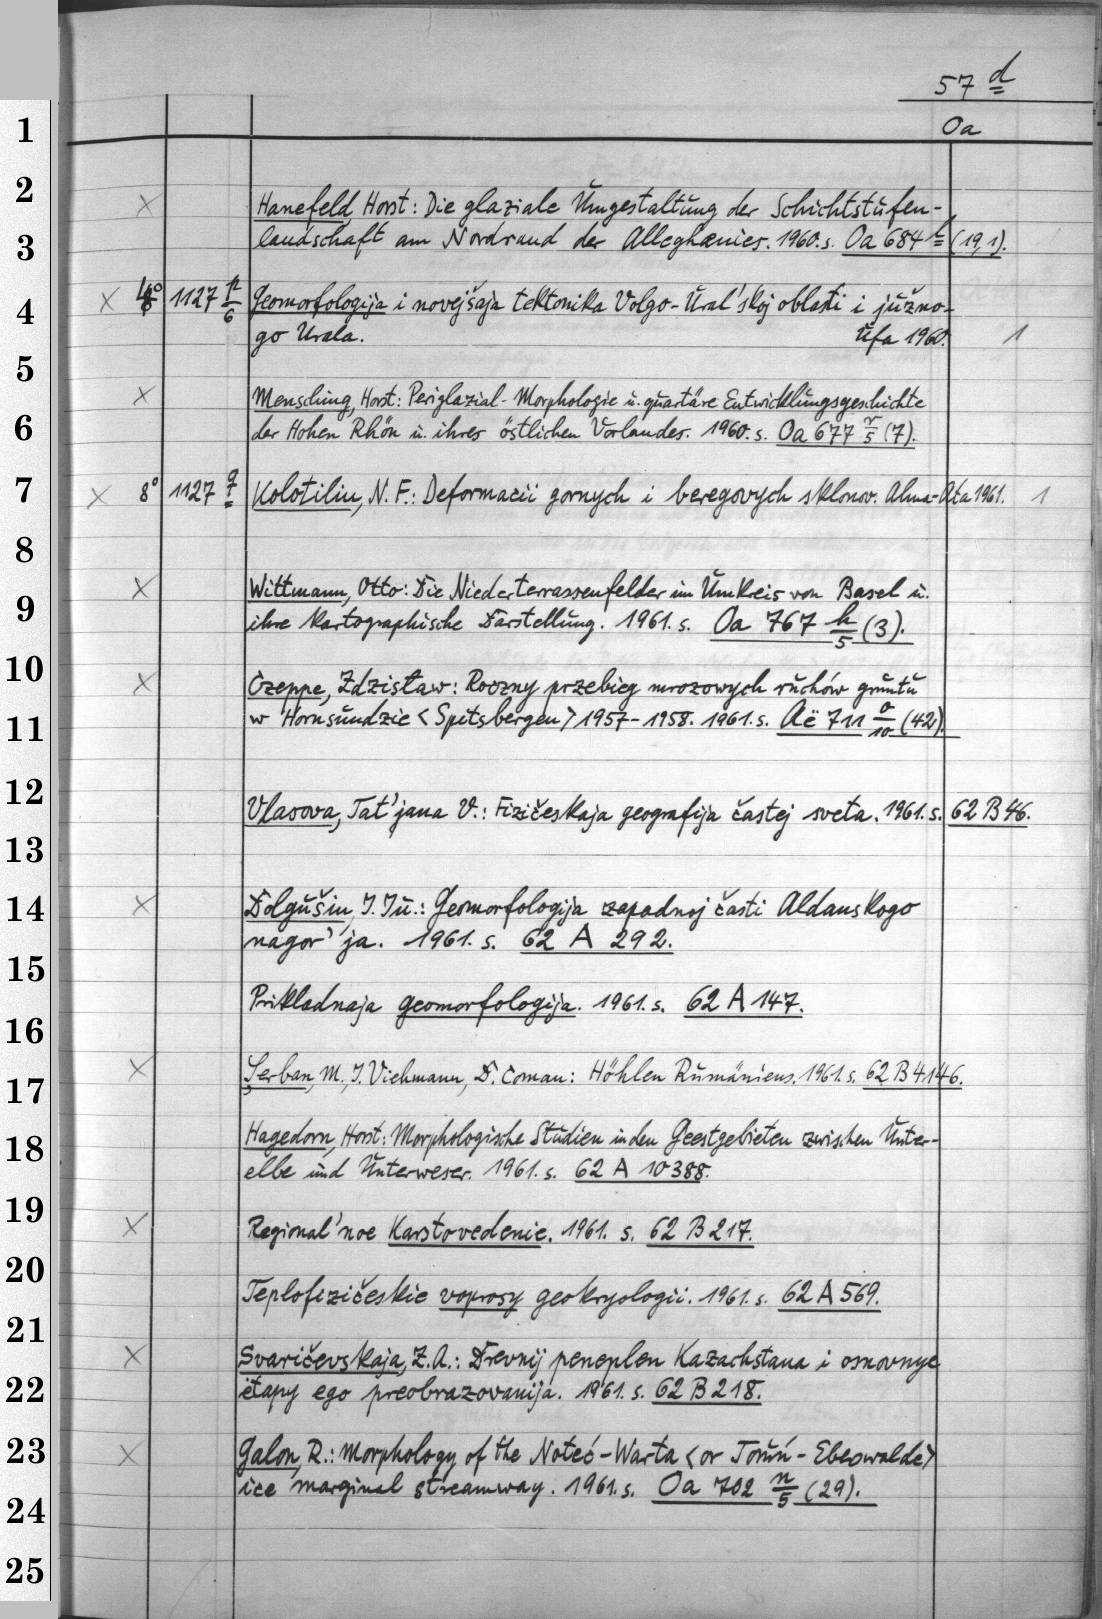 57 d
Oa
1
2
× Hanefeld, Horst: Die glaziale Umgestaltung der Schichtstufen-
3
landschaft am Nordrand der Alleghanies. 1960. s. Oa 684 (19,1).
4
× 1127 Geomorfologija i novejšaja tektonika Volgo-Ural'skoj oblasti i južno-
go Urala. Ufa 1960. 1
5
× Mensching, Horst: Periglazial-Morphologie u. quartäre Entwicklungsgeschichte
6
der Hohen Rhön u. ihres östlichen Vorlandes. 1960. s. Oa 677 r/5 (7).
7
× 8° 1127 q Kolotilin, N. F.: Deformacii gornych i beregovych sklonov. Alma-Ata 1961. 1
8
× Wittmann, Otto: Die Niederterrassenfelder im Umkreis von Basel u.
9
ihre kartographische Darstellung. 1961. s. Oa 767 h/5 (3).
10
× Czeppe, Zdzisław: Roczny przebieg mrozowych ruchów gruntu
11
w Hornsundzie <Spitsbergen> 1957-1958. 1961. s. Aë 711 o/10 (42).
12
Vlasova, Tat'jana V.: Fizičeskaja geografija častej sveta. 1961. s. 62 B 46.
13
14
× Dolgušin, I. Ju.: Geomorfologija zapadnoj časti Aldanskogo
nagor'ja. 1961. s. 62 A 292.
15
Prikladnaja geomorfologija. 1961. s. 62 A 147.
16
17
× Şerban, M., I. Viehmann, D. Coman: Höhlen Rumäniens. 1961. s. 62 B 4146.
18
Hagedorn, Horst: Morphologische Studien in den Geestgebieten zwischen Unter-
elbe und Unterweser. 1961. s. 62 A 10388.
19
× Regional'noe Karstovedenie. 1961. s. 62 B 217.
20
Teplofizičeskie voprosy geokryologii. 1961. s. 62 A 569.
21
× Svaričevskaja, Z. A.: Drevnij peneplen Kazachstana i osnovnye
22
ėtapy ego preobrazovanija. 1961. s. 62 B 218.
23
× Galon, R.: Morphology of the Noteć-Warta <or Toruń-Eberswalde>
ice marginal streamway. 1961. s. Oa 702 n/5 (29).
24
25